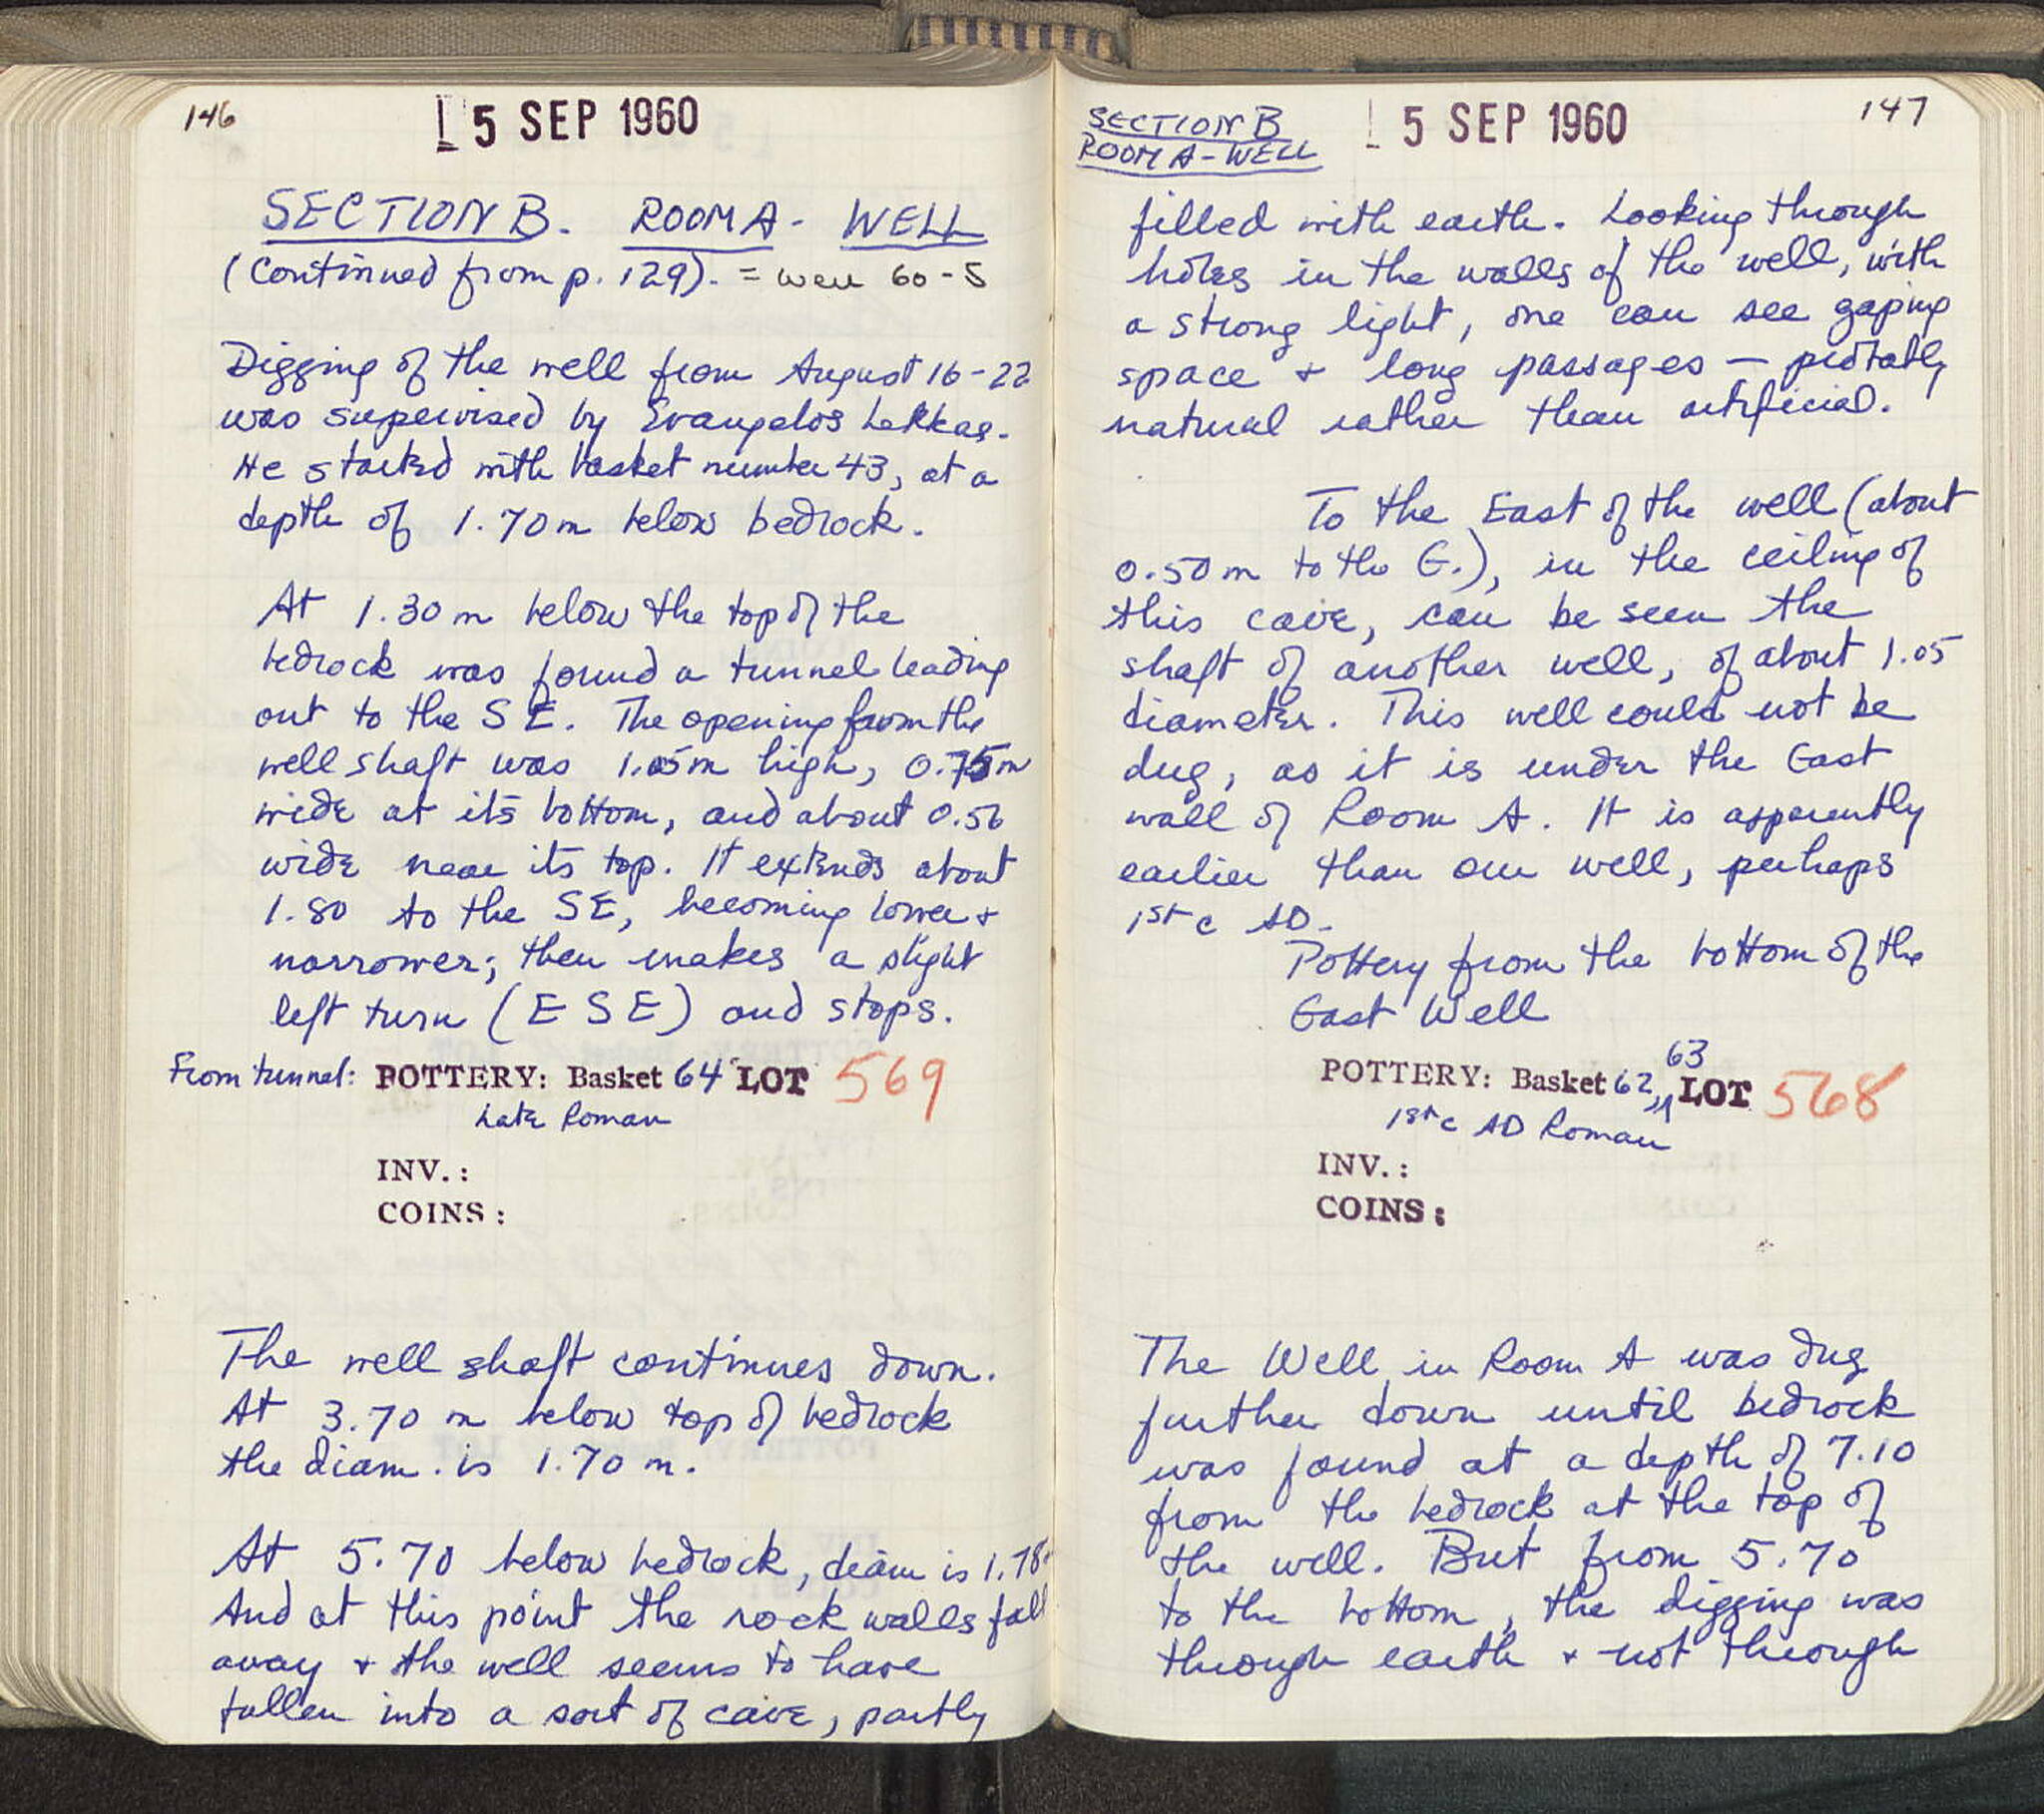 146
5 SEP 1960
SECTION B. ROOM A - WELL
(continued from p. 129). = Well 60-5
Digging of the well from August 16-22
was supervised by Evangelos Lekkas.
He started with basket number 43, at a
depth of 1.70 m below bedrock.
At 1.30 m below the top of the
bedrock was found a tunnel leading
out to the SE. The opening from the
well shaft was 1.05 m high, 0.75 m
wide at its bottom, and about 0.50
wide near its top. It extends about
1.80 to the SE, becoming lower +
narrower; then makes a slight
left turn (ESE) and stops.
From tunnel: POTTERY: Basket 64 LOT 569
Late Roman
INV.:
COINS:
The well shaft continues down.
At 3.70 m below top of bedrock
the diam. is 1.70 m.
At 5.70 below bedrock, diam is 1.78
And at this point the rock walls fall
away + the well seems to have
fallen into a sort of cave, partly
SECTION B
ROOM A - WELL
5 SEP 1960
147
filled with earth. Looking through
holes in the walls of the well, with
a strong light, one can see gaping
space + long passages — probably
natural rather than artificial.
To the East of the well (about
0.50 m to the E.), in the ceiling of
this cave, can be seen the
shaft of another well, of about 1.05
diameter. This well could not be
dug, as it is under the East
wall of Room A. It is apparently
earlier than our well, perhaps
1st c AD.
Pottery from the bottom of the
East Well
POTTERY: Basket 62, 63 LOT 568
1st c AD Roman
INV.:
COINS:
The Well in Room A was dug
further down until bedrock
was found at a depth of 7.10
from the bedrock at the top of
the well. But from 5.70
to the bottom, the digging was
through earth + not through